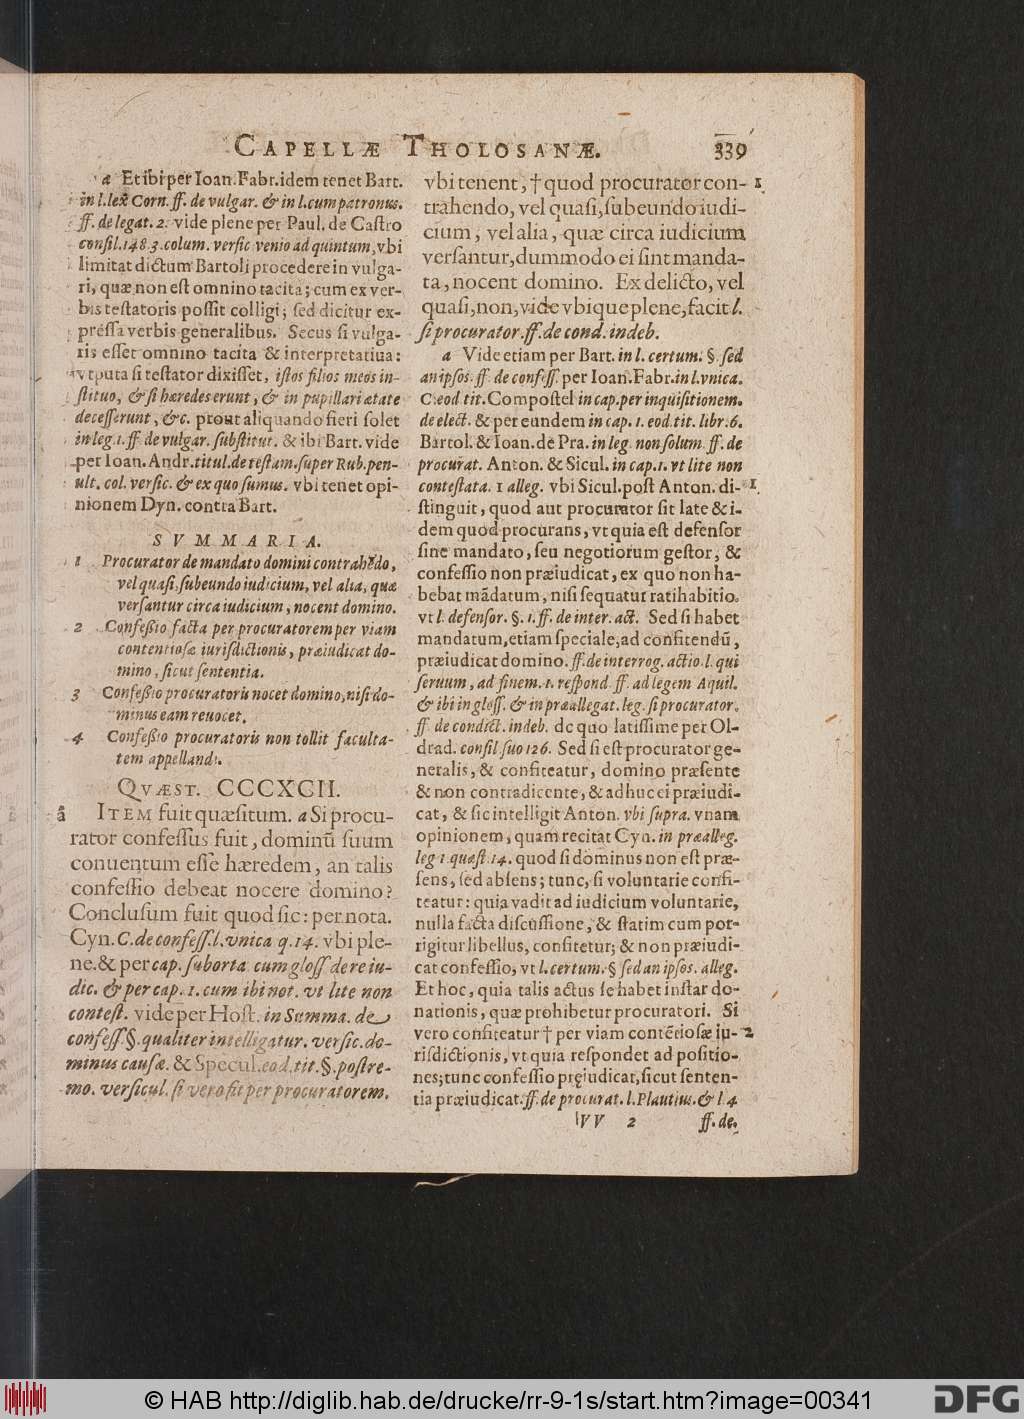 CAPELLÆ THOLOSANÆ. 339
a Et ibi per Ioan. Fabr. idem tenet Bart.
in l. lex Corn. ff. de vulgar. & in l. cum patronus.
ff. de legat. 2. vide plene per Paul. de Castro
consil. 148 3. colum. versic venio ad quintum, vbi
limitat dictum Bartoli procedere in vulga-
ri, quæ non est omnino tacita; cum ex ver-
bis testatoris possit colligi; sed dicitur ex-
pressa verbis generalibus. Secus si vulga-
ris esset omnino tacita & interpretatiua:
vt puta si testator dixisset, istos filios meos in-
stituo, & si hæredes erunt, & in pupillari ætate
decesserunt, &c. prout aliquando fieri solet
in leg. 1. ff. de vulgar. substitut. & ibi Bart. vide
per Ioan. Andr. titul. de testam. super Rub. pen-
ult. col. versic. & ex quo sumus. vbi tenet opi-
nionem Dyn. contra Bart.
SVMMARIA.
1 Procurator de mandato domini contrahēdo,
vel quasi, subeundo iudicium, vel alia, quæ
versantur circa iudicium, nocent domino.
2 Confessio facta per procuratorem per viam
contentiosæ iurisdictionis, præiudicat do-
mino, sicut sententia.
3 Confessio procuratoris nocet domino, nisi do-
minus eam reuocet.
4 Confessio procuratoris non tollit faculta-
tem appellandi.
QVÆST. CCCXCII.
a ITEM fuit quæsitum. a Si procu-
rator confessus fuit, dominū suum
conuentum esse hæredem, an talis
confessio debeat nocere domino?
Conclusum fuit quod sic: per nota.
Cyn. C. de confess. l. vnica q. 14. vbi ple-
ne. & per cap. suborta cum gloss de re iu-
dic. & per cap. 1. cum ibi not. vt lite non
contest. vide per Host. in Summa. de
confess. §. qualiter intelligatur. versic. do-
minus causæ. & Specul. eod. tit. §. postre-
mo. versicul. si vero fit per procuratorem.
vbi tenent, † quod procurator con- 1
trahendo, vel quasi, subeundo iudi-
cium, vel alia, quæ circa iudicium
versantur, dummodo ei sint manda-
ta, nocent domino. Ex delicto, vel
quasi, non, vide vbique plene, facit l.
si procurator. ff. de cond. indeb.
a Vide etiam per Bart. in l. certum. §. sed
an ipsos. ff. de confess. per Ioan. Fabr. in l. vnica.
C. eod tit. Compostel in cap. per inquisitionem.
de elect. & per eundem in cap. 1. eod. tit. libr. 6.
Bartol. & Ioan. de Pra. in leg. non solum. ff. de
procurat. Anton. & Sicul. in cap. 1. vt lite non
contestata. 1 alleg. vbi Sicul. post Anton. di- 1
stinguit, quod aut procurator sit late & i-
dem quod procurans, vt quia est defensor
sine mandato, seu negotiorum gestor, &
confessio non præiudicat, ex quo non ha-
bebat mādatum, nisi sequatur ratihabitio.
vt l. defensor. §. 1. ff. de inter. act. Sed si habet
mandatum, etiam speciale, ad confitendū,
præiudicat domino. ff. de interrog. actio. l. qui
seruum, ad finem. 1. respond. ff. ad legem Aquil.
& ibi in gloss. & in præallegat. leg. si procurator.
ff. de condict. indeb. de quo latissime per Ol-
drad. consil. suo 126. Sed si est procurator ge-
neralis, & confiteatur, domino præsente
& non contradicente, & adhuc ei præiudi-
cat, & sic intelligit Anton. vbi supra. vnam
opinionem, quam recitat Cyn. in præalleg.
leg 1 quæst. 14. quod si dominus non est præ-
sens, sed absens; tunc, si voluntarie confi-
teatur: quia vadit ad iudicium voluntarie,
nulla facta discussione, & statim cum por-
rigitur libellus, confitetur; & non præiudi-
cat confessio, vt l. certum. § sed an ipsos. alleg.
Et hoc, quia talis actus se habet instar do-
nationis, quæ prohibetur procuratori. Si
vero confiteatur † per viam contētiosæ iu- 2
risdictionis, vt quia respondet ad positio-
nes; tunc confessio pręiudicat, sicut senten-
tia præiudicat. ff. de procurat. l. Plautius. & l. 4
VV 2 ff. de.
© HAB http://diglib.hab.de/drucke/rr-9-1s/start.htm?image=00341
DFG